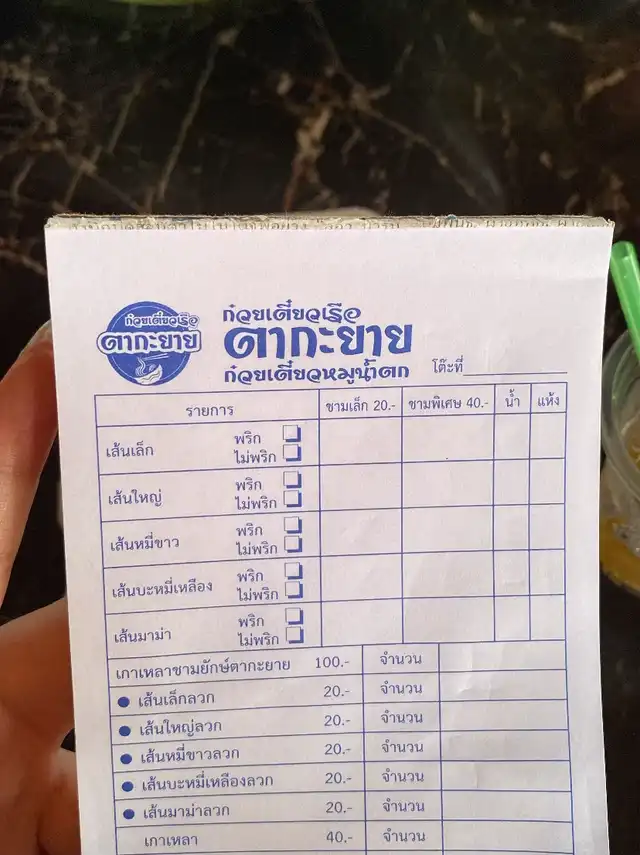 ก๋วยเตี๋ยวเรือ
ตากะยาย
ก๋วยเตี๋ยวเรือ
ตากะยาย
ก๋วยเตี๋ยวหมูน้ำตก
โต๊ะที่
รายการ ชามเล็ก 20.- ชามพิเศษ 40.- น้ำ แห้ง
เส้นเล็ก พริก
ไม่พริก
เส้นใหญ่ พริก
ไม่พริก
เส้นหมี่ขาว พริก
ไม่พริก
เส้นบะหมี่เหลือง พริก
ไม่พริก
เส้นมาม่า พริก
ไม่พริก
เกาเหลาชามยักษ์ตากะยาย 100.- จำนวน
● เส้นเล็กลวก 20.- จำนวน
● เส้นใหญ่ลวก 20.- จำนวน
● เส้นหมี่ขาวลวก 20.- จำนวน
● เส้นบะหมี่เหลืองลวก 20.- จำนวน
● เส้นมาม่าลวก 20.- จำนวน
เกาเหลา 40.- จำนวน